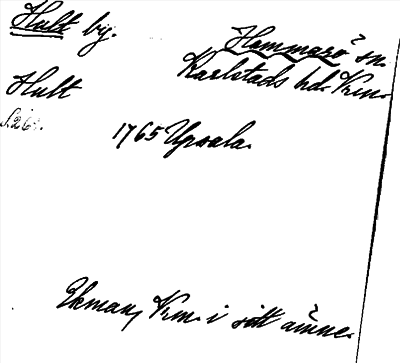 Hult by.
Hammarö sn.
Karlstads hd. Vrm.
Hult
S. 26.
1765 Upsala.
Ekman, Vrm. i sitt ämne.